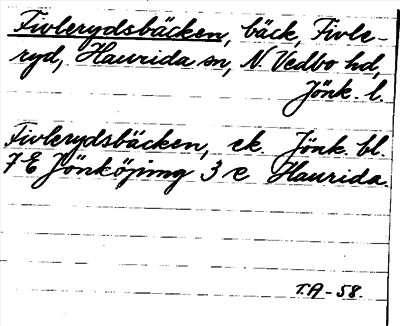 Fivlerydsbäcken, bäck, Fivle-
ryd, Haurida sn, N. Vedbo hd,
Jönk. l.
Fivlerydsbäcken, ek. Jönk. bl.
7 E Jönköping 3 e Haurida.
T.A-58.